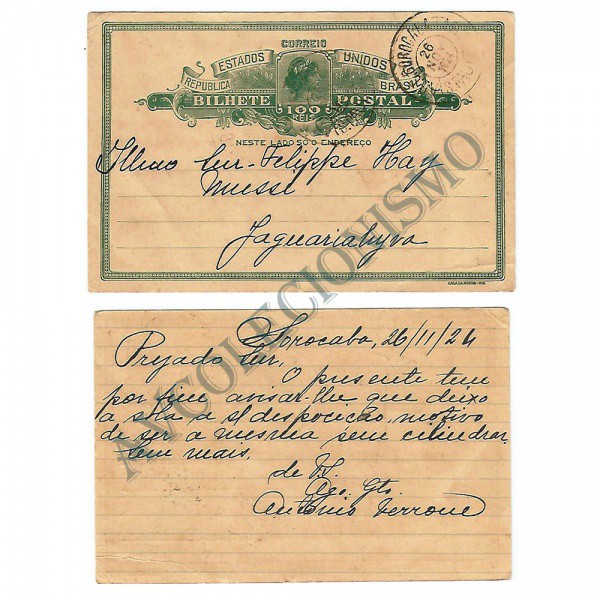 CORREIO
ESTADOS UNIDOS
REPUBLICA BRASIL
BILHETE 100 POSTAL
REIS
NESTE LADO SÓ O ENDEREÇO
SOROCABA
26
Illmo Snr. Felippe Hay
Musse
Jaguariahyva
CASA DA MOEDA-RIO
Sorocaba, 26/11/24
Prezado Snr.
O presente tem
por fim avisar-lhe que deixo
a sola a s/ desposicão, motivo
de ser a mesma sem cilindrar
Sem mais,
de V.S.
Ago. Gto.
Antonio Verrone
AVCOLECIONISMO